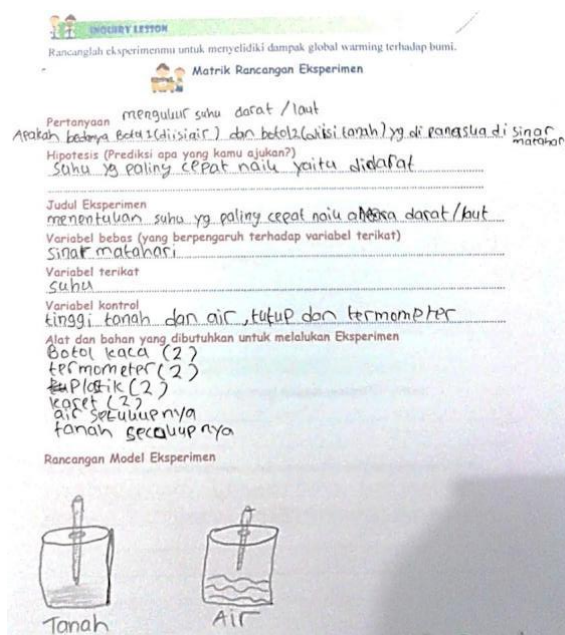 INQUIRY LESSON
Rancanglah eksperimenmu untuk menyelidiki dampak global warming terhadap bumi.
Matrik Rancangan Eksperimen
Pertanyaan mengukur suhu darat / laut
Apakah bedanya Botol 1 (diisi air) dan botol 2 (diisi tanah) yg di panaskan di sinar matahari
Hipotesis (Prediksi apa yang kamu ajukan?)
Suhu yg paling cepat naik yaitu didarat
Judul Eksperimen
menentukan suhu yg paling cepat naik antara darat / laut
Variabel bebas (yang berpengaruh terhadap variabel terikat)
sinar matahari
Variabel terikat
suhu
Variabel kontrol
tinggi tanah dan air, tutup dan termometer
Alat dan bahan yang dibutuhkan untuk melalukan Eksperimen
Botol kaca (2)
termometer (2)
Plastik (2)
karet (2)
air secukupnya
tanah secukupnya
Rancangan Model Eksperimen
Tanah Air